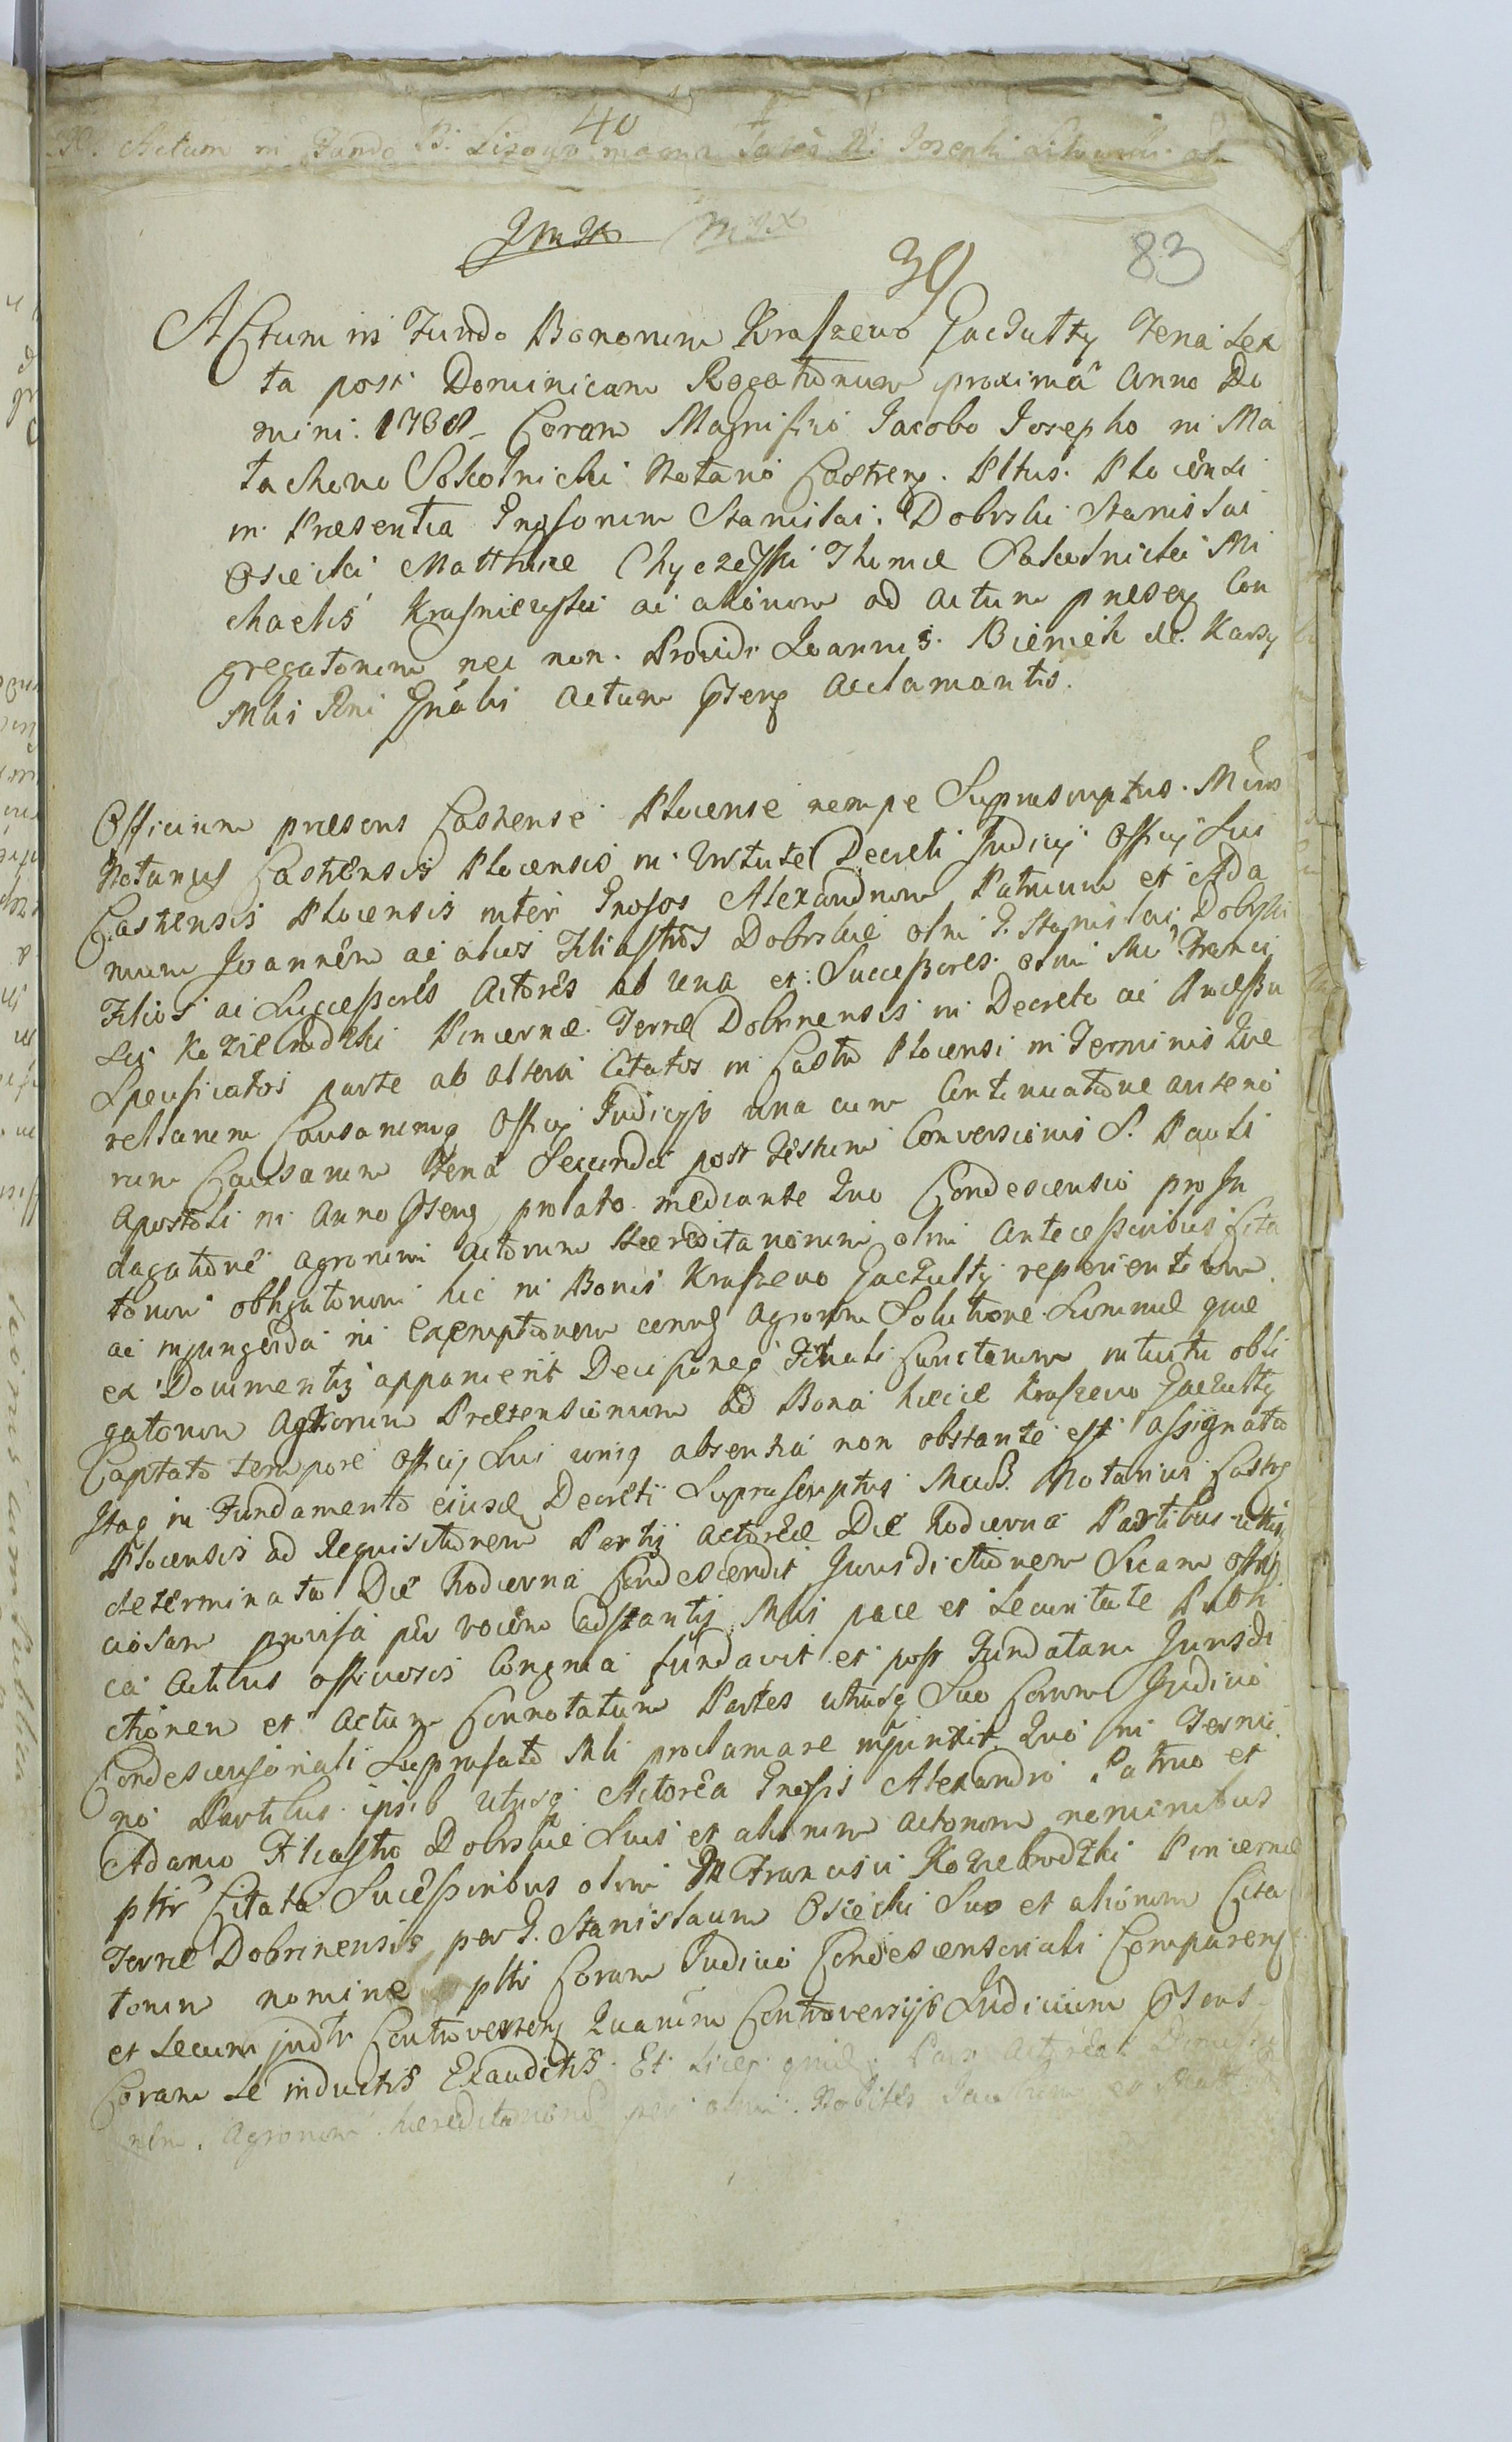 40
Actum in Fundo B. Lizogub magna Josephi
39
83
Actum in Fundo Bonorum Kraszewo Gaczułty Feria Sex
ta post Dominicam Rogationum proxima Anno Do
mini. 1738. Coram Magnifico Jacobo Josepho in Ma
tachowo Sokolnicki Notario Castren. Pltus. Plocensi
in Praesentia Gnosorum Stanislai. Dobrski Stanislai
Osiecki Matthiae Chyczeski Thomae Sokolnicki Mi
chaelis Krasniewski ac aliorum ad actum praesen Con
gregatorum nec non. Providi Joannis. Biemek de. Karsy
Mlis Rni Gnalis actum pnsens acclamantis.
Officium praesens Castrense Plocense nempe Suprascriptus. Mcus
Notarius Castrensis Plocensis in Virtute Decreti Judicij Officij Sui
Castrensis Plocensis inter Gnosos Alexandrum Patruum et Ada
mum Joannem ac alios Filiastros Dobrskie olim G. Stanislai Dobrski
Filios ac Successores Actores ab una et Successores olim Mci Franci
sci Koziebrodzki Pincernae Terrae Dobrinensis in Decreto ac Processu
Specificatos parte ab altera Citatos in Castro Plocensi in Terminis Que
rellarum Causarumq Officij Judicijs una cum Continuatione anterio
rum Causarum Feria Secunda post Festum Conversionis S. Pauli
Apostoli in Anno pnsens prolato mediante quo Condescensio pro In
dagatione agrorum actorum Haereditariorum olim Antecessoribus Cita
torum obligatorum hic in Bonis Kraszewo Gaczułty reperientium
ac injungenda in exemptionem eorum agrorum Solutione Summae quae
ex Documentis apparuerit Decisioneq Finali Cunctarum intuitu obli
gatorum Agrorum Praetensionum ad Bona haecce Kraszewo Gaczułty
Captato tempore Officij Sui uniq absentia non obstante est assignata
Itaq in Fundamento ejusd Decreti Suprascriptus Mcus Notarius Castren
Plocensis ad Requisitionem Partis Actoreae Die hodierna Partibus utrisq
determinata Die hodierna Condescendit Jurisdictionem Suam offi
ciosam praevisa per vocem adstantis Mlis pace et securitate Publi
ca actibus officiosis Congrua fundavit et post Fundatam Jurisdi
ctionem et Actum Connotatum Partes utrasq Suo Coram Judicio
Condescensoriali Suprafato Mli proclamare injunxit. Quo in Termi
no Partibus ipsis utrisq Actorea Gnosis Alexandro Patruo et
Adamo Filiastro Dobrskie Suis et aliorum actorum nominibus
pltr Citata Successoribus olim M Francisci Koziebrodzki Pincernae
Terrae Dobrinensis per G. Stanislaum Osiecki Suo et aliorum Cita
torum nomine pltr Coram Judicio Condescensoriali Comparen
et secum judtr Controverten Quarum Controversijs Judicium pnsens
Coram Se inductis Exauditis. Et licet quid Pars Actorea
agrorum haereditariorum per olim. Nobiles